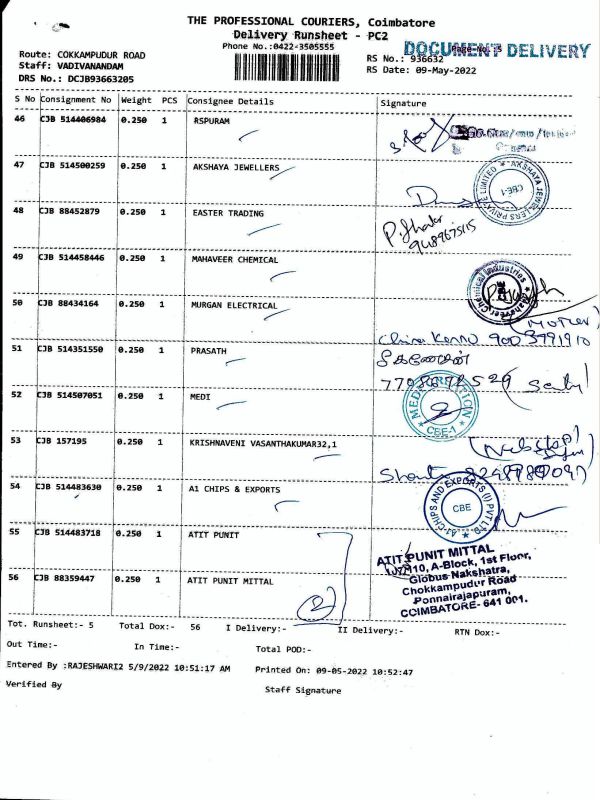 THE PROFESSIONAL COURIERS, Coimbatore
Delivery Runsheet - PC2
Phone No.:0422-3505555
DOCUMENT DELIVERY
Page No.:5
Route: COKKAMPUDUR ROAD
Staff: VADIVANANDAM
DRS No.: DCJB93663205
RS No.: 936632
RS Date: 09-May-2022
S No Consignment No Weight PCS Consignee Details Signature
46 CJB 514406984 0.250 1 RSPURAM
47 CJB 514500259 0.250 1 AKSHAYA JEWELLERS
AKSHAYA JEWELLERS PRIVATE LIMITED
CBE-1
48 CJB 88452879 0.250 1 EASTER TRADING
49 CJB 514458446 0.250 1 MAHAVEER CHEMICAL
Mahaveer Chemical Industries
50 CJB 88434164 0.250 1 MURGAN ELECTRICAL
(MOTHER)
51 CJB 514351550 0.250 1 PRASATH
52 CJB 514507051 0.250 1 MEDI
CBE-1
53 CJB 157195 0.250 1 KRISHNAVENI VASANTHAKUMAR32,1
54 CJB 514483630 0.250 1 A1 CHIPS & EXPORTS
A1-CHIPS AND EXPORTS (I) PVT LTD
CBE
55 CJB 514483718 0.250 1 ATIT PUNIT
56 CJB 88359447 0.250 1 ATIT PUNIT MITTAL
2
ATIT PUNIT MITTAL
A-Block, 1st Floor,
Globus Nakshatra,
Chokkampudur Road
Ponnairajapuram,
COIMBATORE- 641 001.
Tot. Runsheet:- 5 Total Dox:- 56 I Delivery:- II Delivery:- RTN Dox:-
Out Time:- In Time:- Total POD:-
Entered By :RAJESHWARI2 5/9/2022 10:51:17 AM Printed On: 09-05-2022 10:52:47
Verified By Staff Signature